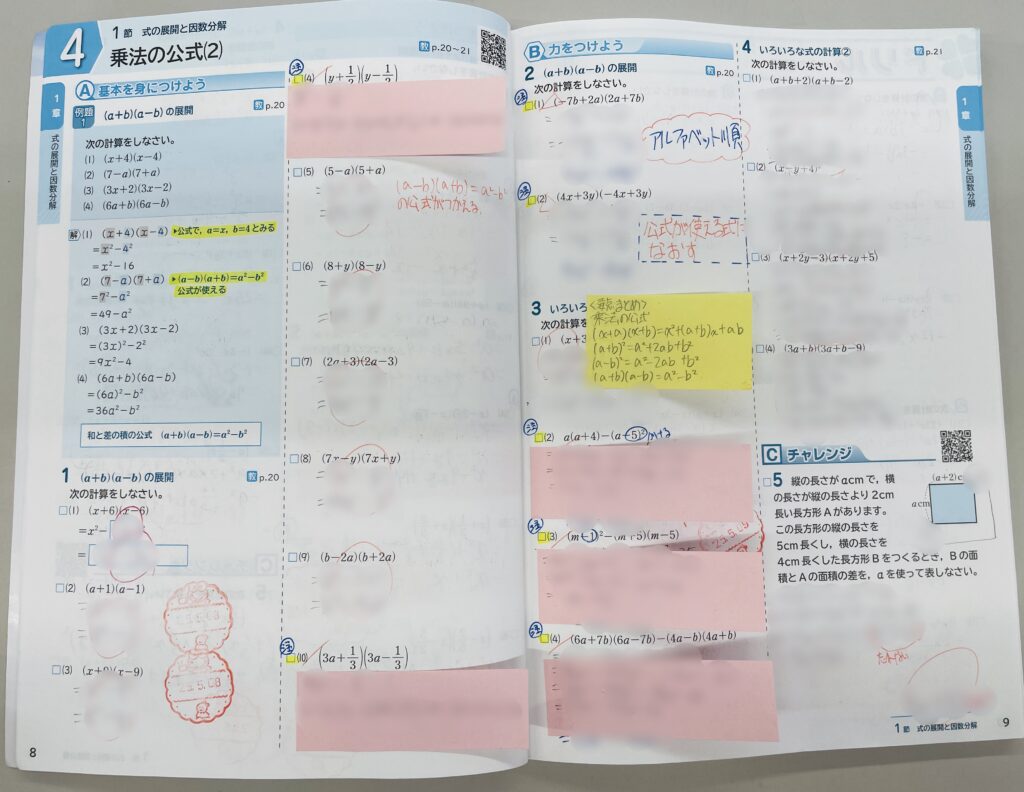 4
1節 式の展開と因数分解
乗法の公式(2)
教 p.20~21
A 基本を身につけよう
1章 式の展開と因数分解
例題1 (a+b)(a−b) の展開
教 p.20
次の計算をしなさい。
(1) (x+4)(x−4)
(2) (7−a)(7+a)
(3) (3x+2)(3x−2)
(4) (6a+b)(6a−b)
解 (1) (x+4)(x−4) ▶公式で，a=x，b=4とみる
=x²−4²
=x²−16
(2) (7−a)(7+a) ▶(a−b)(a+b)=a²−b²
公式が使える
=7²−a²
=49−a²
(3) (3x+2)(3x−2)
=(3x)²−2²
=9x²−4
(4) (6a+b)(6a−b)
=(6a)²−b²
=36a²−b²
和と差の積の公式 (a+b)(a−b)=a²−b²
1 (a+b)(a−b) の展開
教 p.20
次の計算をしなさい。
□(1) (x+6)(x−6)
=x²−
=
□(2) (a+1)(a−1)
=
=
25.5.08
□(3) (x+9)(x−9)
=
=
25.5.08
8
注
□(4) (y+1/2)(y−1/2)
□(5) (5−a)(5+a)
=
=
(a−b)(a+b)=a²−b²
の公式がつかえる
□(6) (8+y)(8−y)
=
=
□(7) (2a+3)(2a−3)
=
=
□(8) (7x−y)(7x+y)
=
=
□(9) (b−2a)(b+2a)
=
=
注
□(10) (3a+1/3)(3a−1/3)
B 力をつけよう
2 (a+b)(a−b) の展開
教 p.20
次の計算をしなさい。
注
□(1) (−7b+2a)(2a+7b)
=
アルファベット順
注
□(2) (4x+3y)(−4x+3y)
=
公式が使える式に
なおす
3 いろいろ
次の計算を
□(1) (x+3
<要点まとめ>
乗法の公式
(x+a)(x+b)=x²+(a+b)x+ab
(a+b)²=a²+2ab+b²
(a−b)²=a²−2ab+b²
(a+b)(a−b)=a²−b²
□(2) a(a+4)−(a−5)²
注
□(3) (m−1)²−(m+5)(m−5)
25.5.09
注
□(4) (6a+7b)(6a−7b)−(4a−b)(4a+b)
=
4 いろいろな式の計算②
教 p.21
次の計算をしなさい。
□(1) (a+b+2)(a+b−2)
□(2) (x−y+4)²
□(3) (x+2y−3)(x+2y+5)
□(4) (3a+b)(3a+b−9)
C チャレンジ
□5 縦の長さが a cm で，横
の長さが縦の長さより 2cm
長い長方形 A があります。
この長方形の縦の長さを
5cm 長くし，横の長さを
4cm 長くした長方形 B をつくるとき，B の面
積と A の面積の差を，a を使って表しなさい。
(a+2)c
a cm
1章 式の展開と因数分解
1節 式の展開と因数分解
9